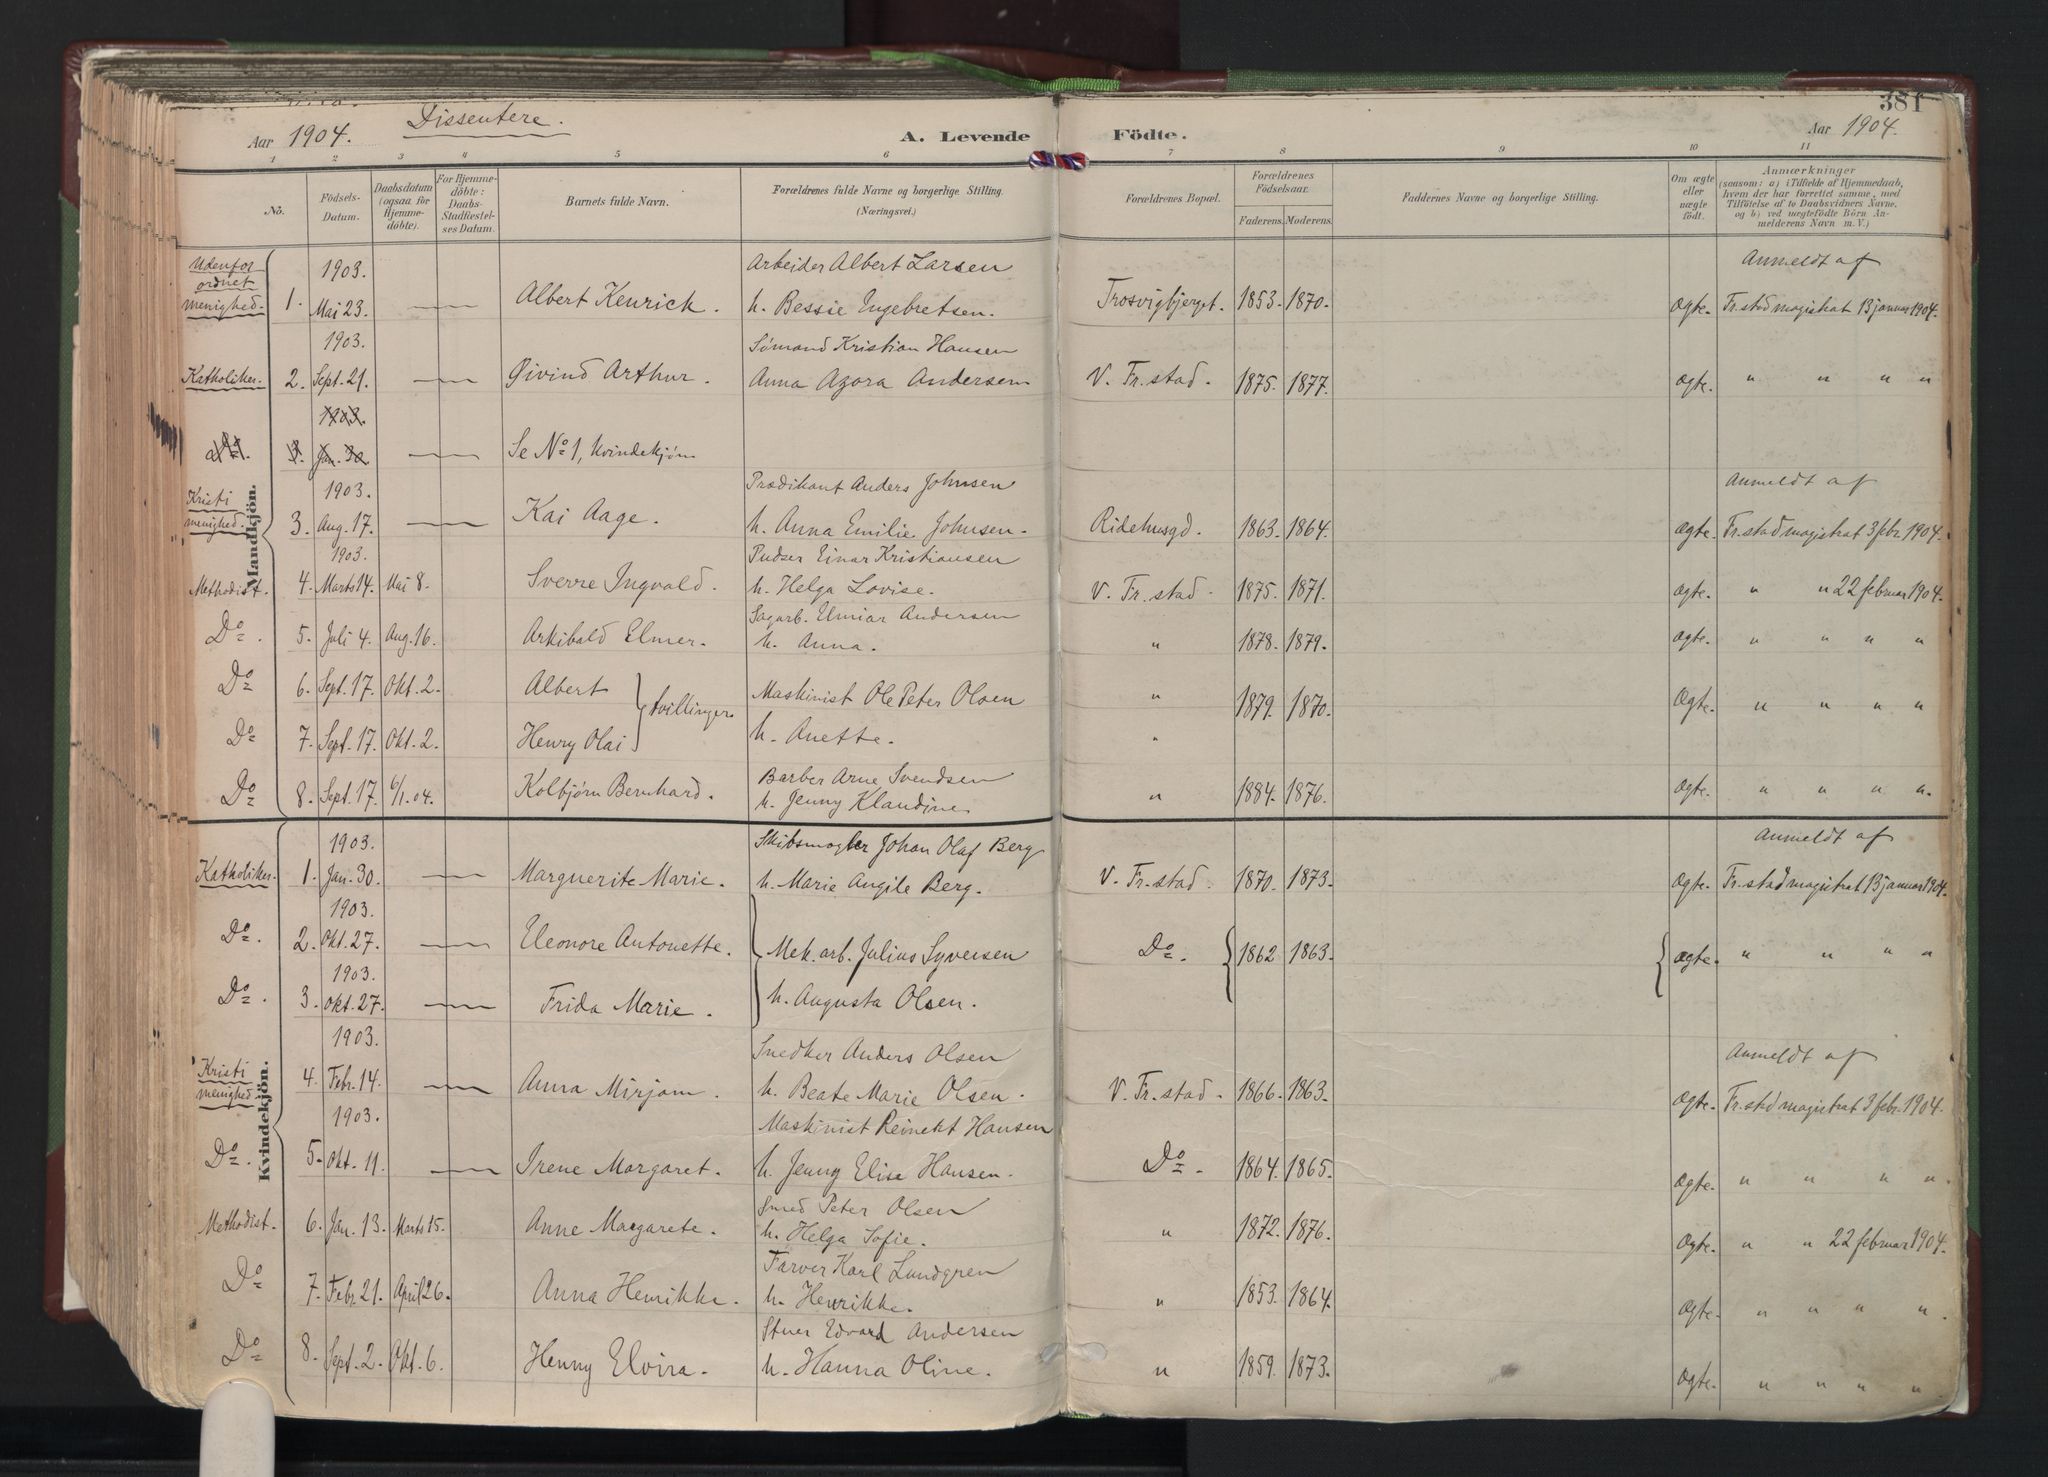 381
Aar 1904. Dissentere. A. Levende Födte. Aar 1904.
1 2 3 4 5 6 7 8 9 10 11
No. Födsels-Datum. Daabsdatum (ogsaa för Hjemmedöbte). For Hjemmedöbte: Daabs-Stadfæstelses Datum. Barnets fulde Navn. Forældrenes fulde Navne og borgerlige Stilling. (Næringsvei.) Forældrenes Bopæl. Forældrenes Födselsaar. Faderens. Moderens. Faddernes Navne og borgerlige Stilling. Om ægte eller uægte födt. Anmærkninger (saasom: a) i Tilfælde af Hjemmedaab, hvem der har forrettet samme, med Tilföielse af to Daabsvidners Navne, og b) ved uægtefödte Börn Anmelderens Navn m. V.)
Mandkjön.
Udenfor ordnet menighed. 1903. Arbeider Albert Larsen Anmeldt af
1. Mai 23. Albert Kenrick. h. Bessie Ingebretsen. Trosvigbjerget. 1853. 1870. Ægte. Fr.stad magistrat 13 januar 1904.
1903. Sømand Kristian Hansen
Katholiker. 2. Sept. 21. Øivind Arthur. Anna Azora Andersen V. Fr.stad. 1875. 1877. ægte. " " " "
1903.
3. Jan. 30 Se No 1, kvindekjøn
Kristi menighed. 1903. Prædikant Anders Johnsen Anmeldt af
3. Aug. 17. Kai Aage. h. Anna Emilie Johnsen. Ridehusgd. 1863. 1864. ægte. Fr.stad magistrat 3 febr 1904.
1903. Pudser Einar Kristiansen
Methodist. 4. Marts 14. Mai 8. Sverre Ingvald. h. Helga Lovise. V. Fr.stad. 1875. 1871. ægte. " " 22 februar 1904.
Sagarb. Andersen
Do. 5. Juli 4. Aug. 16. Arkibald Elmer. h. Anna. " 1878. 1879. ægte. " " " "
Do 6. Sept. 17. Okt. 2. Albert } tvillinger Maskinist Ole Peter Olsen " 1879. 1870. Ægte. " " " "
Do 7. Sept. 17. Okt. 2. Henry Olai h. Anette. "
Barber Arne Svendsen
Do 8. Sept. 17. 6/1. 04. Kolbjørn Bernhard. h. Jenny Klaudine " 1884. 1876. Ægte. " " " "
Kvindekjön.
1903. Skibsmægler Johan Olaf Berg Anmeldt af
Katholiker. 1. Jan. 30. Marguerite Marie. h. Marie Angile Berg. V. Fr.stad. 1870. 1873. Ægte. Fr.stad magistrat 13 januar 1904.
1903.
Do. 2. Okt. 27. Eleonore Antonette. Mek. arb. Julius Syversen Do. 1862 1863. ægte. " " " "
1903.
Do. 3. Okt. 27. Frida Marie. h. Augusta Olsen.
1903. Snedker Anders Olsen Anmeldt af
Kristi menighed 4. Febr. 14. Anna Mirjam. h. Beate Marie Olsen. V. Fr.stad. 1866. 1863. Ægte. Fr.stad magistrat 3 febr. 1904.
1903. Maskinist Reinekt Hansen
Do. 5. Okt. 11. Irene Margaret. h. Jenny Elise Hansen. Do. 1864. 1865. Ægte. " " " "
Smed Peter Olsen
Methodist. 6. Jan. 13. Marts 15. Anne Margarete. h. Helga Sofie. " 1872. 1876. Ægte. " " 22 februar 1904.
Farver Karl Lundgren
Do 7. Febr. 21. April 26. Anna Henrikke. h. Henrikke. " 1853. 1864. Ægte. " " " "
Stuer Edvard Andersen
Do 8. Sept. 2. Okt. 6. Henny Elvira. h. Hanna Oline. " 1859. 1873. Ægte. " " " "